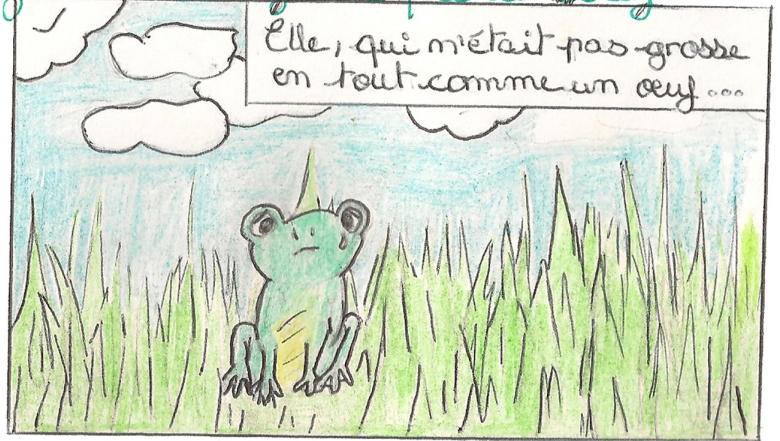 Elle, qui n'était pas grosse
en tout comme un œuf...